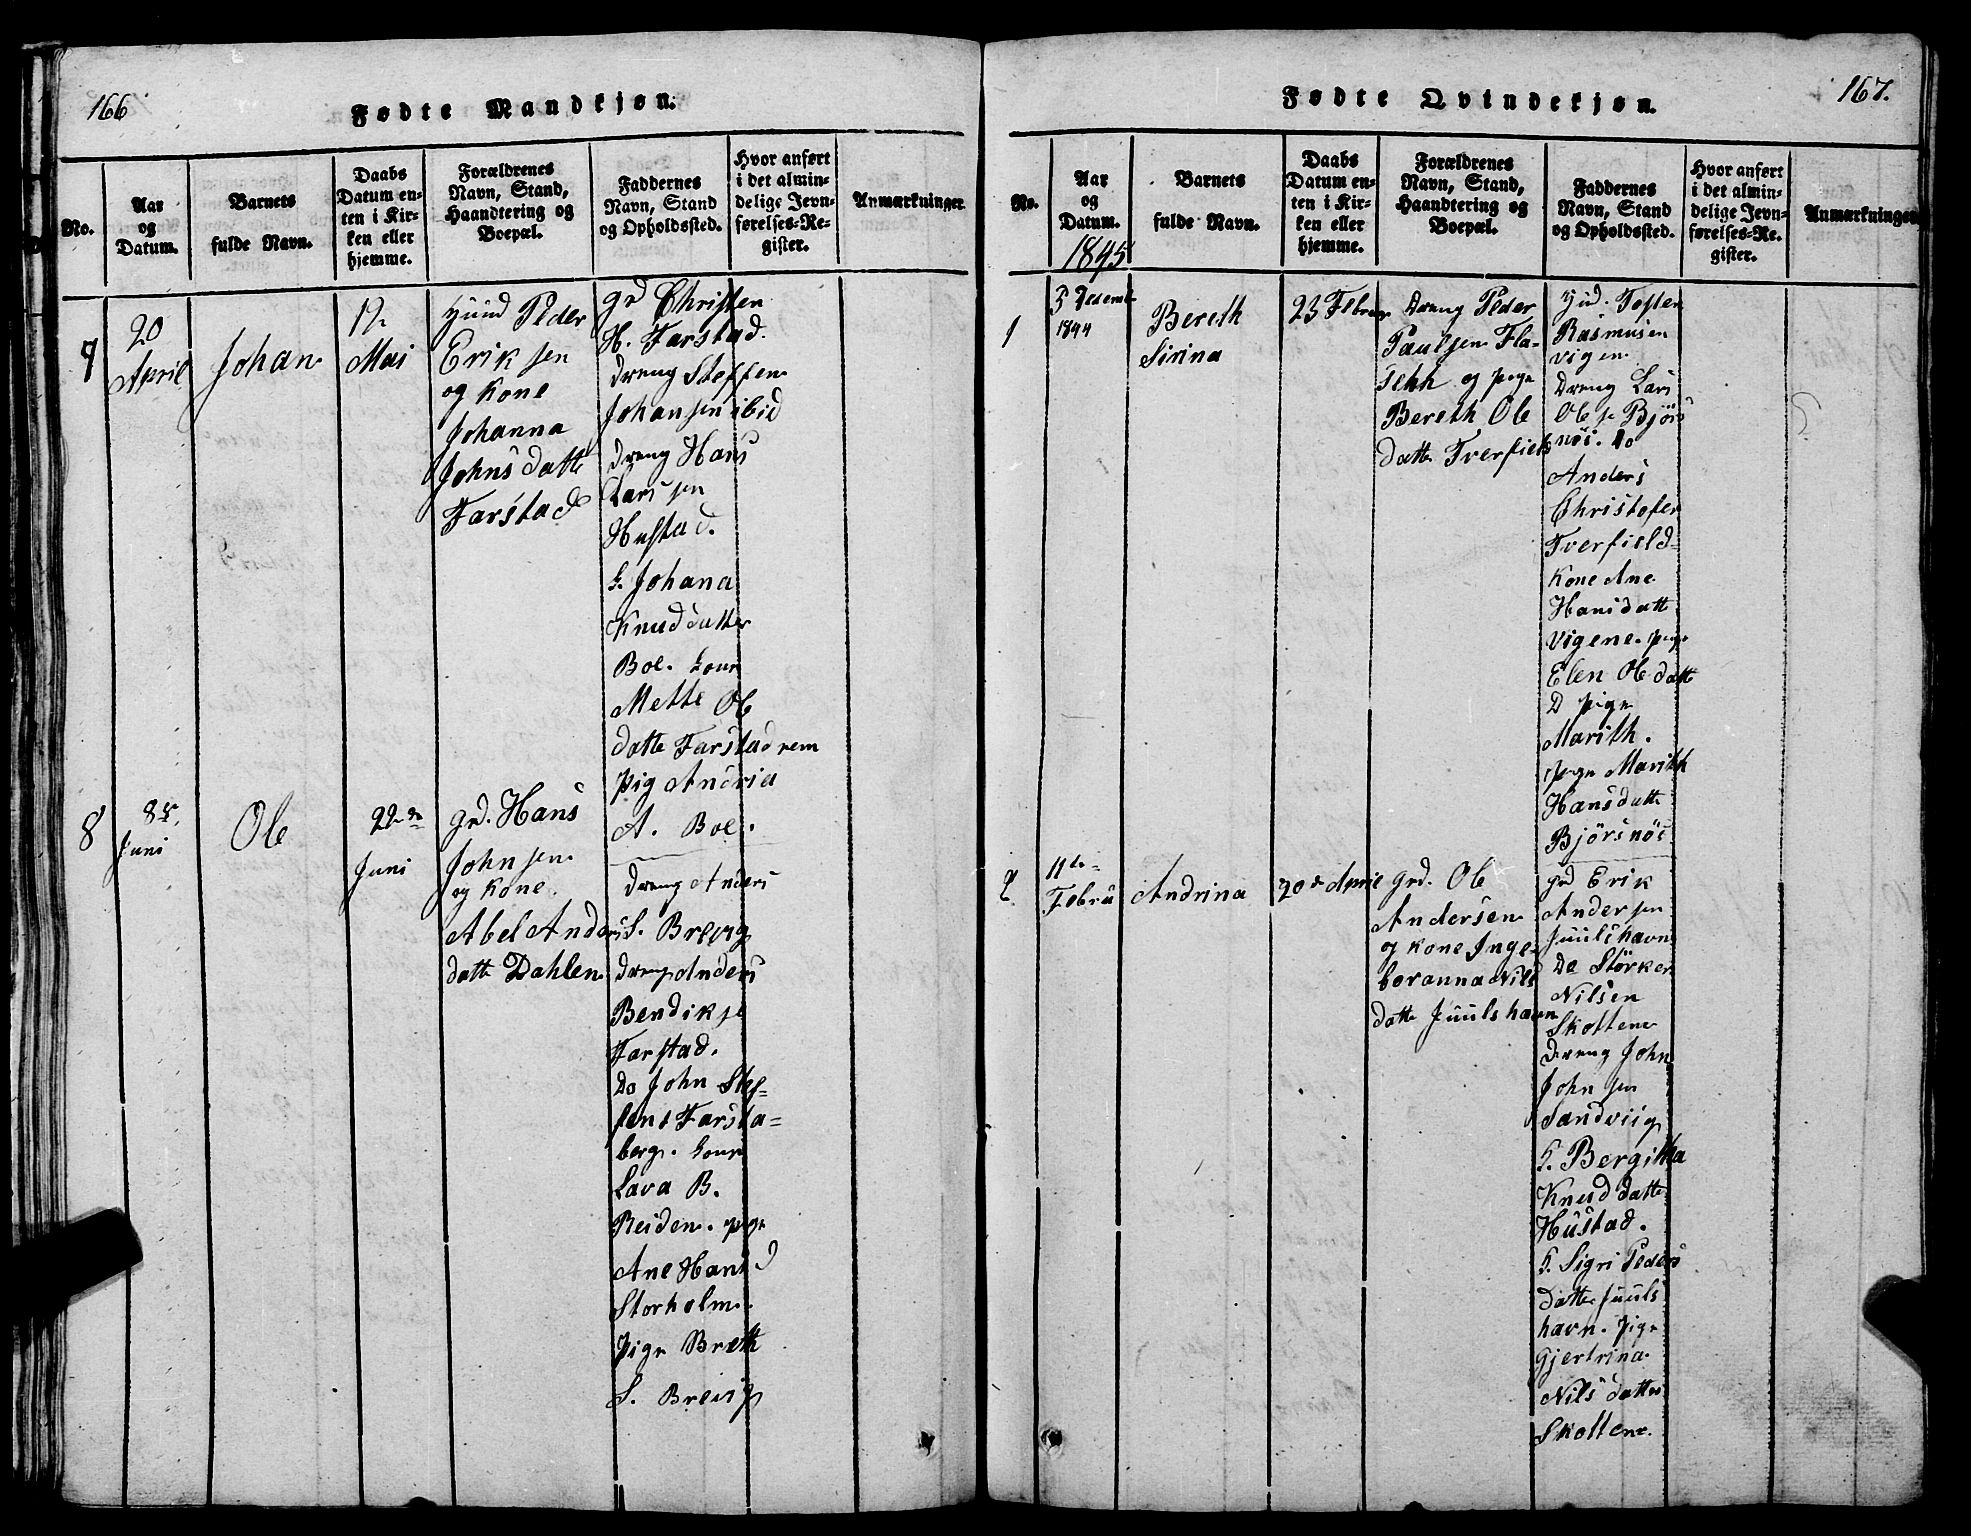 166
Fødte Mandkjøn.
No.
Aar
og
Datum.
Barnets
fulde Navn.
Daabs
Datum en-
ten i Kir-
ken eller
hjemme.
Forældrenes
Navn, Stand,
Haandtering og
Boepæl.
Faddernes
Navn, Stand
og Opholdssted.
Hvor anført
i det almin-
delige Jevn-
førelses-Re-
gister.
Anmærkninger
7
20
April
Johan
Mai
Peder
Eriksen
og kone
Johanna
Johnsdatte
Farstad
grd Christen
H. Farstad.
dreng Steffen
Johansen ibid
dreng Hans
Larsen
Hustad.
k. Johana
Knuddatter
Boe. kone
Mette Ole
datte Farstad
pig Andria
A. Boe.
8
Juni
Ole
22
Juni
grd. Hans
Johnsen
og kone
Abel Anders
datte Dahlen
dreng Anders
S. Brevig
dreng Anders
Bendikse
Farstad.
Do John Stef-
fens Farsta-
berg. kone
Lava B.
Reiden. pige
Ane Hans d
Storholm.
pige Breth
S. Brevig
167.
Fødte Qvindekjøn.
No.
Aar
og
Datum.
1845
Barnets
fulde Navn.
Daabs
Datum en-
ten i Kir-
ken eller
hjemme.
Forældrenes
Navn, Stand,
Haandtering og
Boepæl.
Faddernes
Navn, Stand
og Opholdssted.
Hvor anført
i det almin-
delige Jevn-
førelses-Re-
gister.
Anmærkninger
1
Desemb
1844
Bereth
Sirina
23 Februar
Dreng Peder
Paulsen Fla-
og pige
Bereth Ole
datte Tverfield
Rasmusen
vigen
Dreng Lars
Ole se Bjørs
nøs. Do
Anders
Christofer
Tverfield
kone Ane
Hansdatte
vigene. pige
Elen Ole datte
D pige
Marith.
pige Marith
Hansdatte
Bjørsnøs
2
11te
Febru
Andrina
20de April
grd. Ole
Andersen
og kone Inge-
boranna Nils
datte Juulshavn
grd Erik
Andersen
Juulshavn
De Størker
Nilsen
Skottene
dreng John
Johnsen
Sandviig
k. Bergitha
Knuddatte
Hustad.
k. Sigri Peders
datte Juuls
havn. pige
Gjertrina
Nilsdatte
Skottene.